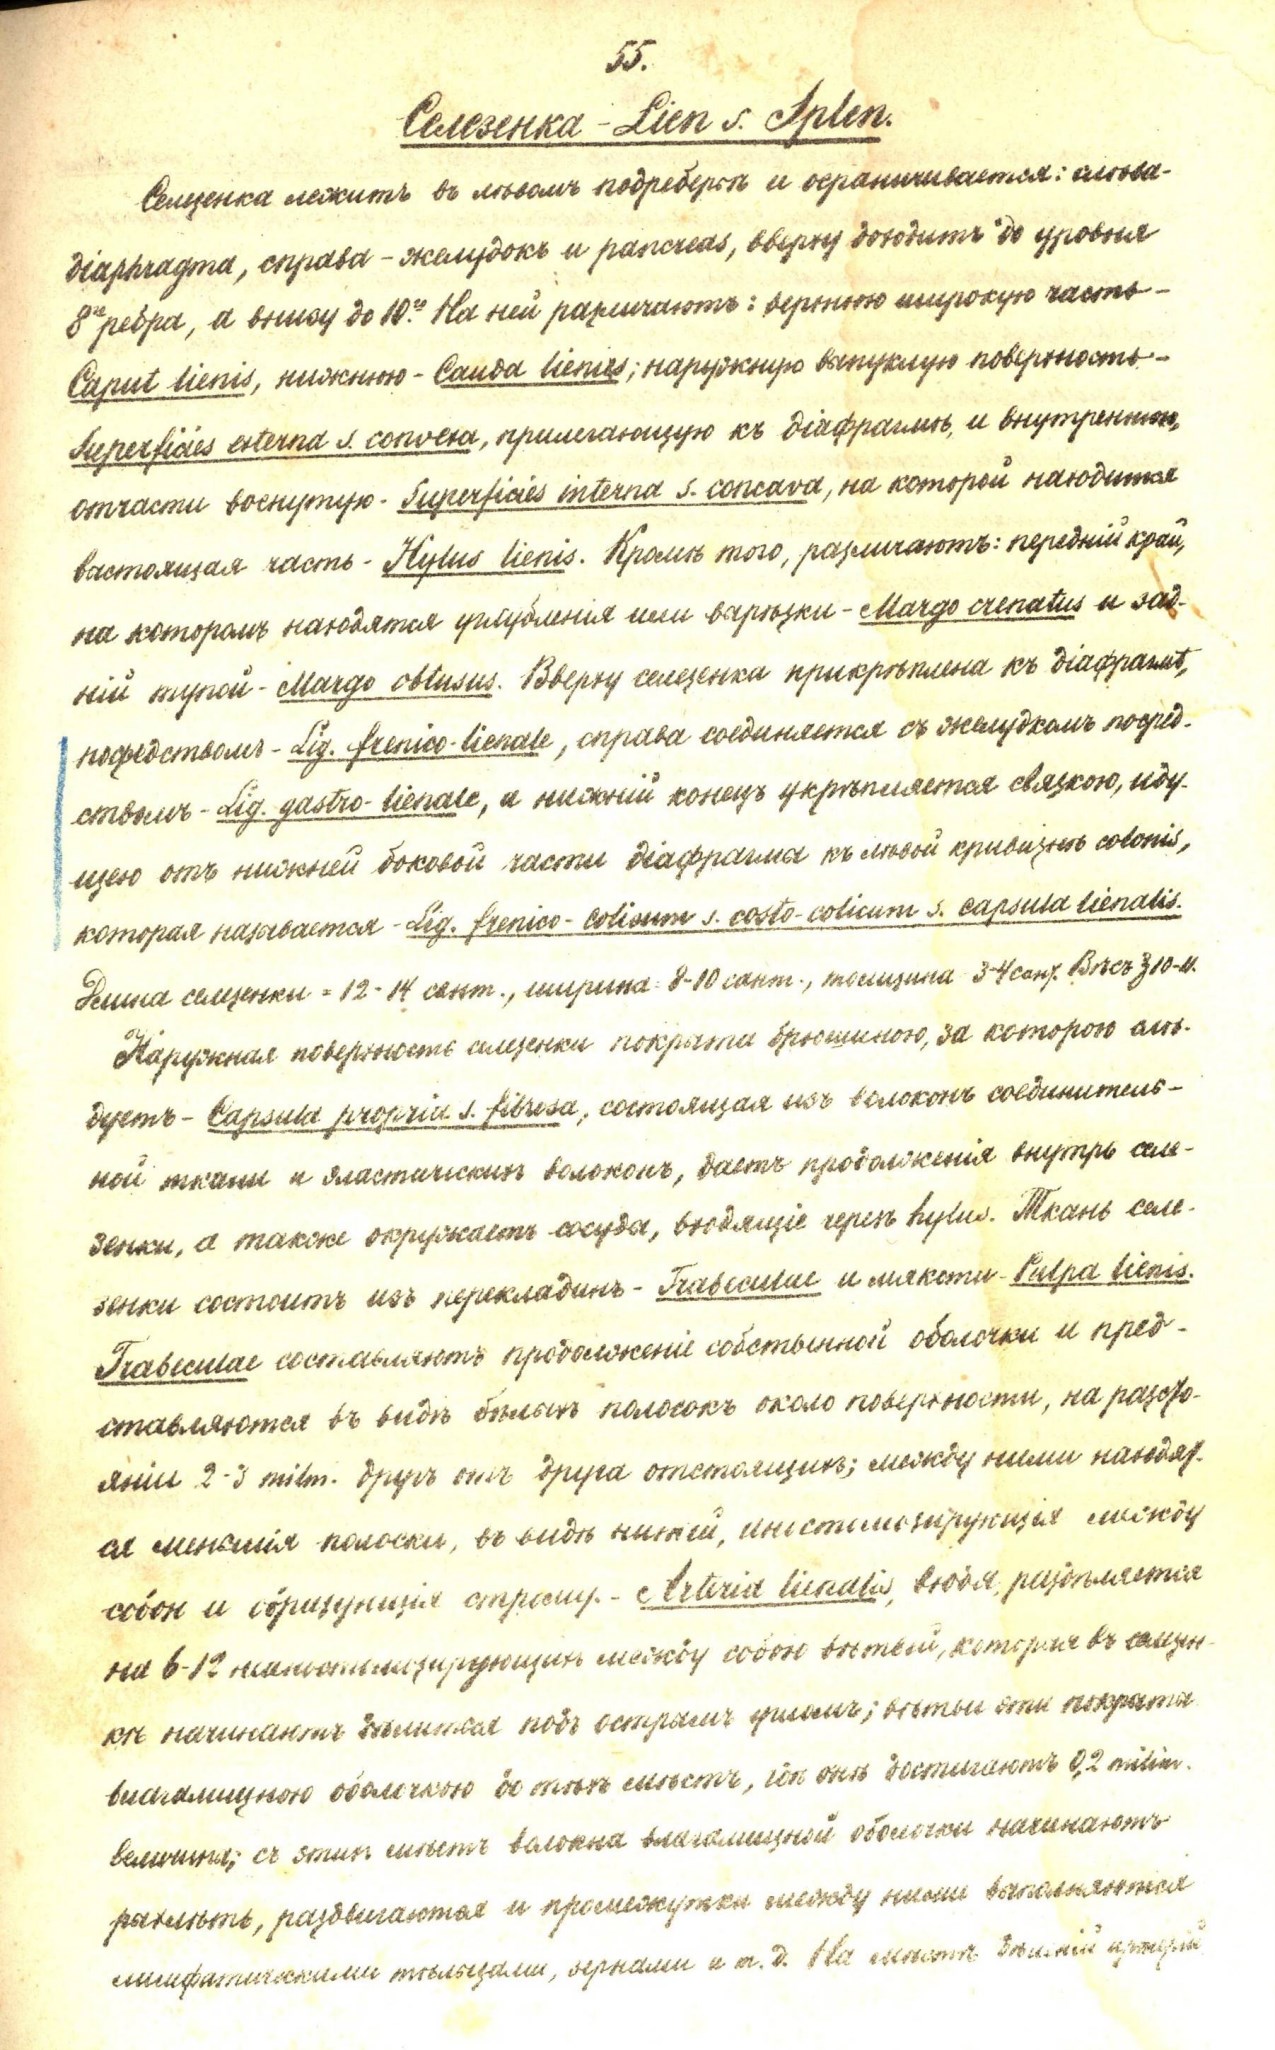 55.
Селезенка - Lien s. Splen.
Селезенка лежитъ въ лѣвомъ подреберьѣ и ограничивается: слѣва -
diaphragma, справа - желудокъ и pancreas, вверху доходитъ до уровня
8го ребра, а внизу до 10го. На ней различаютъ: верхнюю широкую часть -
Caput lienis, нижнюю - Cauda lienis; наружную выпуклую поверхность -
Superficies externa s. convexa, прилегающую къ діафрагмѣ, и внутреннюю,
отчасти вогнутую - Superficies interna s. concava, на которой находится
выстоящая часть - Hylus lienis. Кромѣ того, различаютъ: передній край,
на которомъ находятся углубленія или вырѣзки - Margo crenatus и зад-
ній тупой - Margo obtusus. Вверху селезенка прикрѣплена къ діафрагмѣ,
посредствомъ - Lig. frenico-lienale, справа соединяется съ желудкомъ посред-
ствомъ - Lig. gastro-lienale, а нижній конецъ укрѣпляется связкою, иду-
щею отъ нижней боковой части діафрагмы къ лѣвой кривизнѣ colonis,
которая называется - Lig. frenico-colicum s. costo-colicum s. capsula lienalis.
Длина селезенки = 12-14 сант., ширина = 8-10 сант., толщина 3-4 сант. Вѣсъ ℥ 10-11.
Наружная поверхность селезенки покрыта брюшиною, за которою слѣ-
дуетъ - Capsula propria s. fibrosa, состоящая изъ волоконъ соединитель-
ной ткани и эластическихъ волоконъ, даетъ продолженія внутрь селе-
зенки, а также окружаетъ сосуды, входящіе черезъ hylus. Ткань селе-
зенки состоитъ изъ перекладинъ - Trabeculae и мякоти - Pulpa lienis.
Trabeculae составляютъ продолженіе собственной оболочки и пред-
ставляются въ видѣ бѣлыхъ полосокъ около поверхности, на разсто-
яніи 2-3 milm. другъ отъ друга отстоящихъ; между ними находят-
ся меньшія полоски, въ видѣ нитей, анастомозирующія между
собою и образующія строму. - Arteria lienalis, входя, раздѣляется
на 6-12 неанастомозирующихъ между собою вѣтвей, которыя въ селезен-
кѣ начинаютъ дѣлиться подъ острымъ угломъ; вѣтви эти покрыты
влагалищною оболочкою до тѣхъ мѣстъ, гдѣ онѣ достигаютъ 0,2 milim.
величины; съ этихъ мѣстъ волокна влагалищной оболочки начинаютъ
рыхлѣть, раздвигаются и промежутки между ними выполняются
лимфатическими тѣльцами, зернами и т. д. На мѣстѣ дѣленій артерій